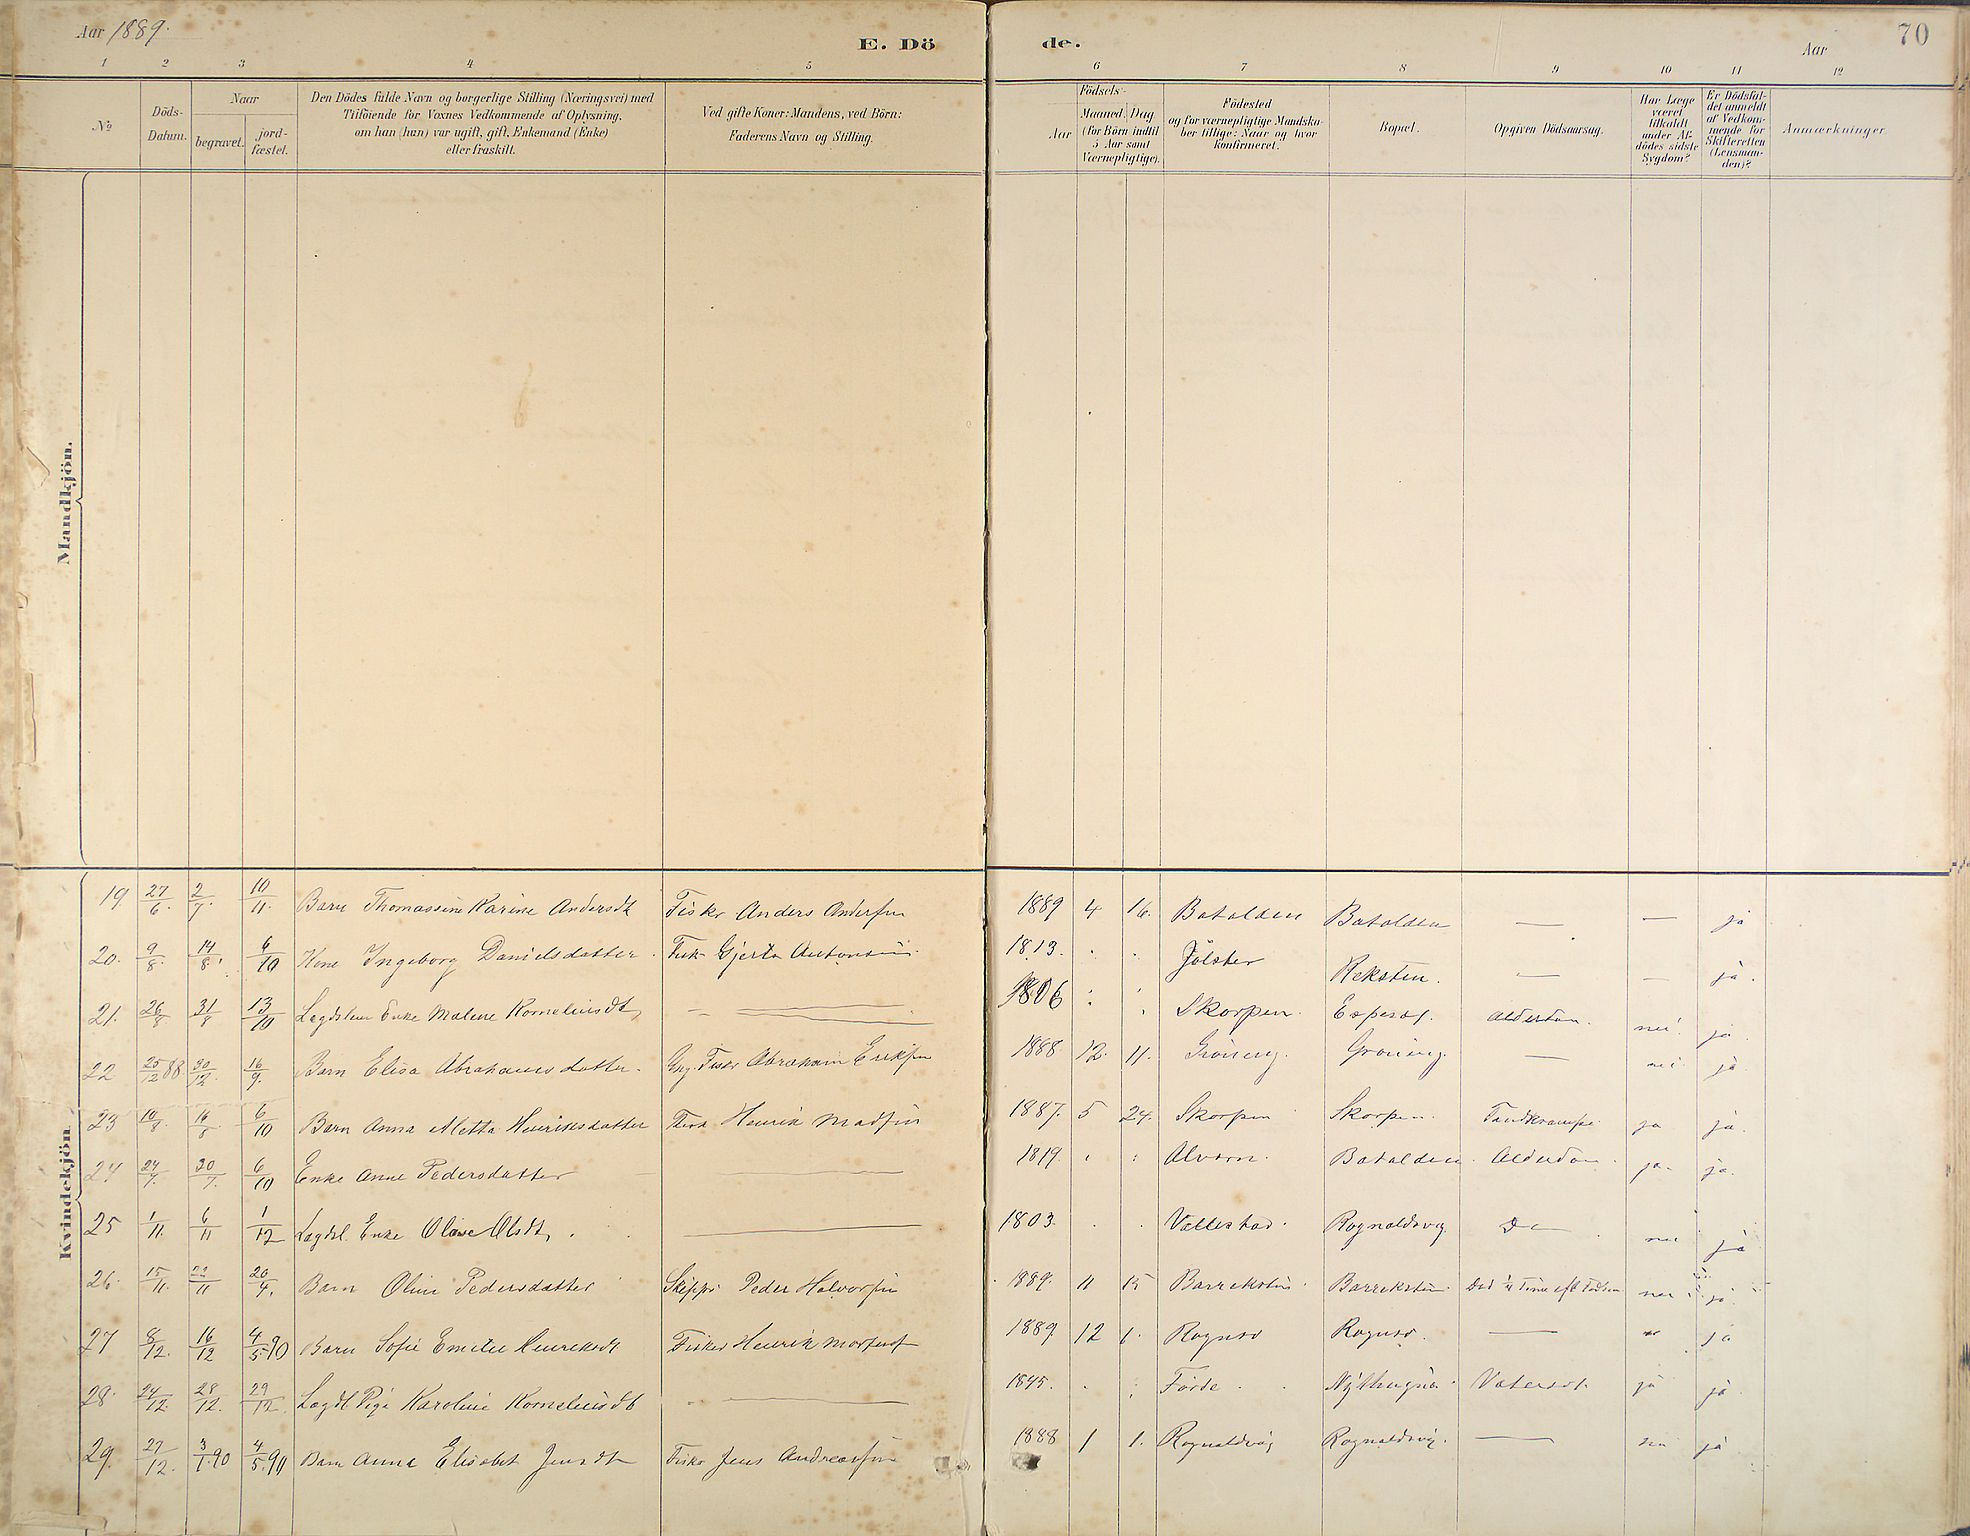 Aar 1889.
E. Dö
de.
Aar
70
1 2 3 4 5 6 7 8 9 10 11 12
№
Döds-
Datum.
Naar
begravet.
jord-
fæstet.
Den Dödes fulde Navn og borgerlige Stilling (Næringsvei) med
Tilföiende for Voxnes Vedkommende af Oplysning,
om han (hun) var ugift, gift, Enkemand (Enke)
eller fraskilt.
Ved gifte Koner: Mandens, ved Börn:
Faderens Navn og Stilling.
Födsels-
Aar
Maaned. Dag
(for Börn indtil
5 Aar samt
Værnepligtige).
Födested
og for værnepligtige Mandska-
ber tillige: Naar og hvor
konfirmeret.
Bopæl.
Opgiven Dödsaarsag.
Har Læge
været
tilkaldt
under Af-
dödes sidste
Sygdom?
Er Dödsfal-
det anmeldt
af Vedkom-
mende for
Skifteretten
(Lensman-
den)?
Anmærkninger.
Mandkjön.
Kvindekjön.
19 27/6. 2/7. 10/11. Barn Thomassine Karine Andersdt Fisker Anders Andersen 1889 4 16. Batalden Batalden — — ja
20. 9/8. 14/8. 6/10 Kone Ingeborg Danielsdatter. Fisk. Gjert Antonsen. 1813. Jölster Reksten. — — ja.
21. 26/8 31/8 13/10 Lægdslem Enke Malene Korneliusdt, — 1806 Skorpen. Espeset. Alderdom. nei. ja
22 25/12 88 30/12. 16/9. Barn Elisa Abrahamsdatter. Fisker Abraham Eriksen 1888 12. 11. Gröning. Gröning. — nei ja
23 10/8. 16/8 6/10 Barn Anna Metta Henriksdatter Fisk Henrik Madsen 1887. 5 24. Skorpen Skorpen. Tandkrampe. ja ja.
24 24/7. 30/7. 6/10 Enke Anne Pedersdatter — 1819. Alvern. Batalden. Alderdom. ja. ja.
25 1/11. 6/11 1/12 Lægdsl. Enke Oline Olsdt, — 1803. Vallestad. Rognaldsvig Do nei ja
26. 15/11. 22/11 20/4. Barn Oline Pedersdatter Skipper Peder Halvorsen 1889. 11 15 Barreksten. Barreksten. Död ¼ Time eft Födsen nei ja.
27 8/12. 16/12 4/5 90 Barn Sofie Emilie Henriksdt Fisker Henrik 1889 12 1. Rognsö Rognsö. — ja
28. 24/12. 28/12. 29/12. Lægdl Pige Karoline Korneliusdt — 1845. Förde. Vatersot. ja ja.
29. 27/12. 3/1. 90 4/5. 90 Barn Anna Elisabet Jensdt Fisker Jens Andreassen 1888 1 1. Rognaldsvåg Rognaldsvig. — nei ja